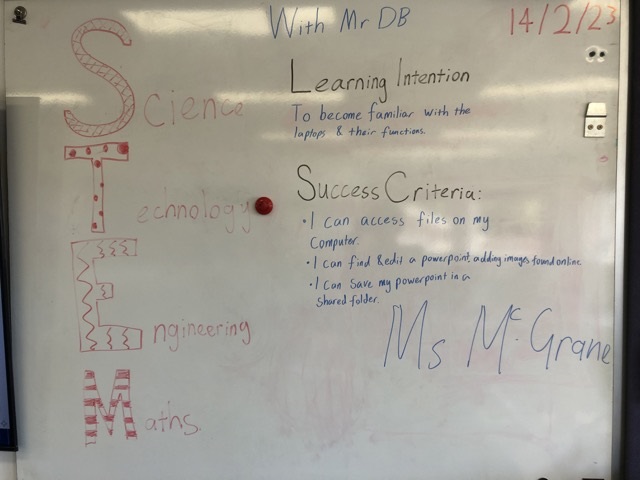 With Mr DB
14/2/23
Science
Technology
Engineering
Maths.
Learning Intention
To become familiar with the
laptops & their functions.
Success Criteria:
• I can access files on my
Computer.
• I can find & edit a powerpoint, adding images found online
• I can save my powerpoint in a
shared folder.
Ms McGrane